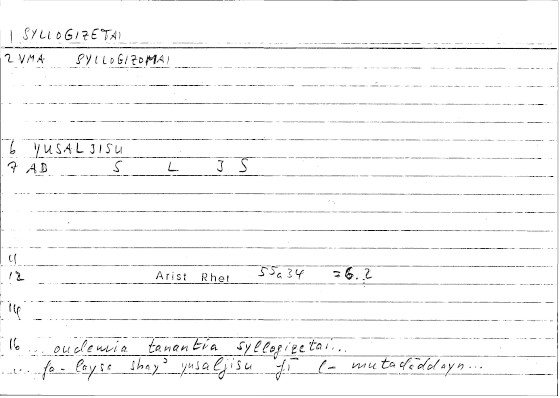 1 SYLLOGIZETAI
2 VMA SYLLOGIZOMAI
6 YUSALJISU
7 AD S L J S
11
12 Arist Rhet 55a34 =6.2
14
16 ... oudemia tanantia syllogizetai...
... fa-laysa shayʾ yusaljisu fī l- mutaḍāddayn...